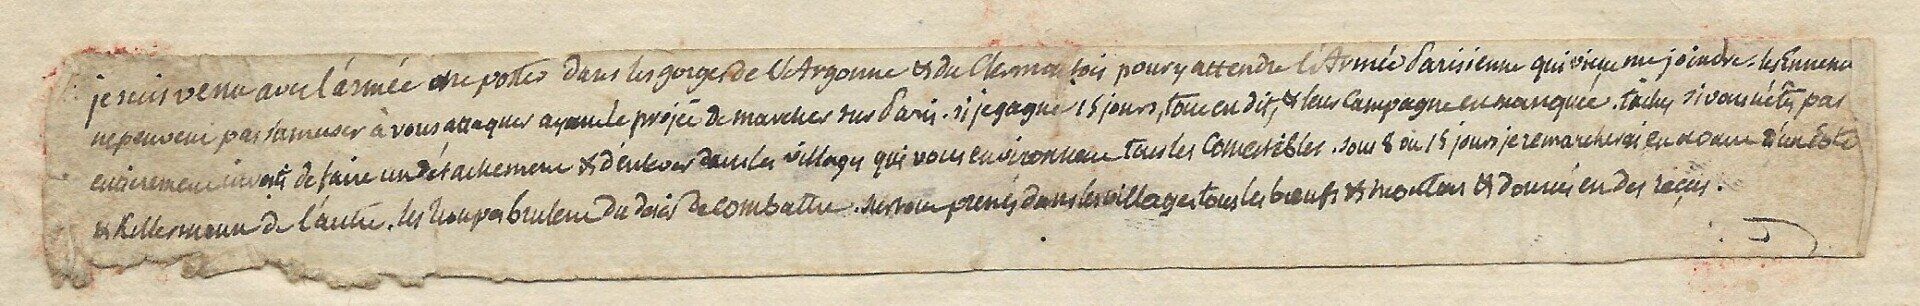 je suis venu avec l'armée me poster dans les gorges de l'Argonne & du Clermontois pour y attendre l'Armée Parisienne qui vient me joindre. les Ennemis
ne peuvent pas s'amuser à vous attaquer ayant le projet de marcher sur Paris. si je gagne 15 jours, tout en dit, & leur Campagne en manquée. tachez si vous n'êtes pas
entierement investi de faire un détachement & d'enlever dans les villages qui vous environnent tous les Comestibles. sous 8 ou 15 jours je remarcherai en avant d'un côté
& Kellermann de l'autre. les troupes brulent du désir de combattre. surtout prenés dans les villages tous les bœufs & moutons & donnés en des reçus.
D